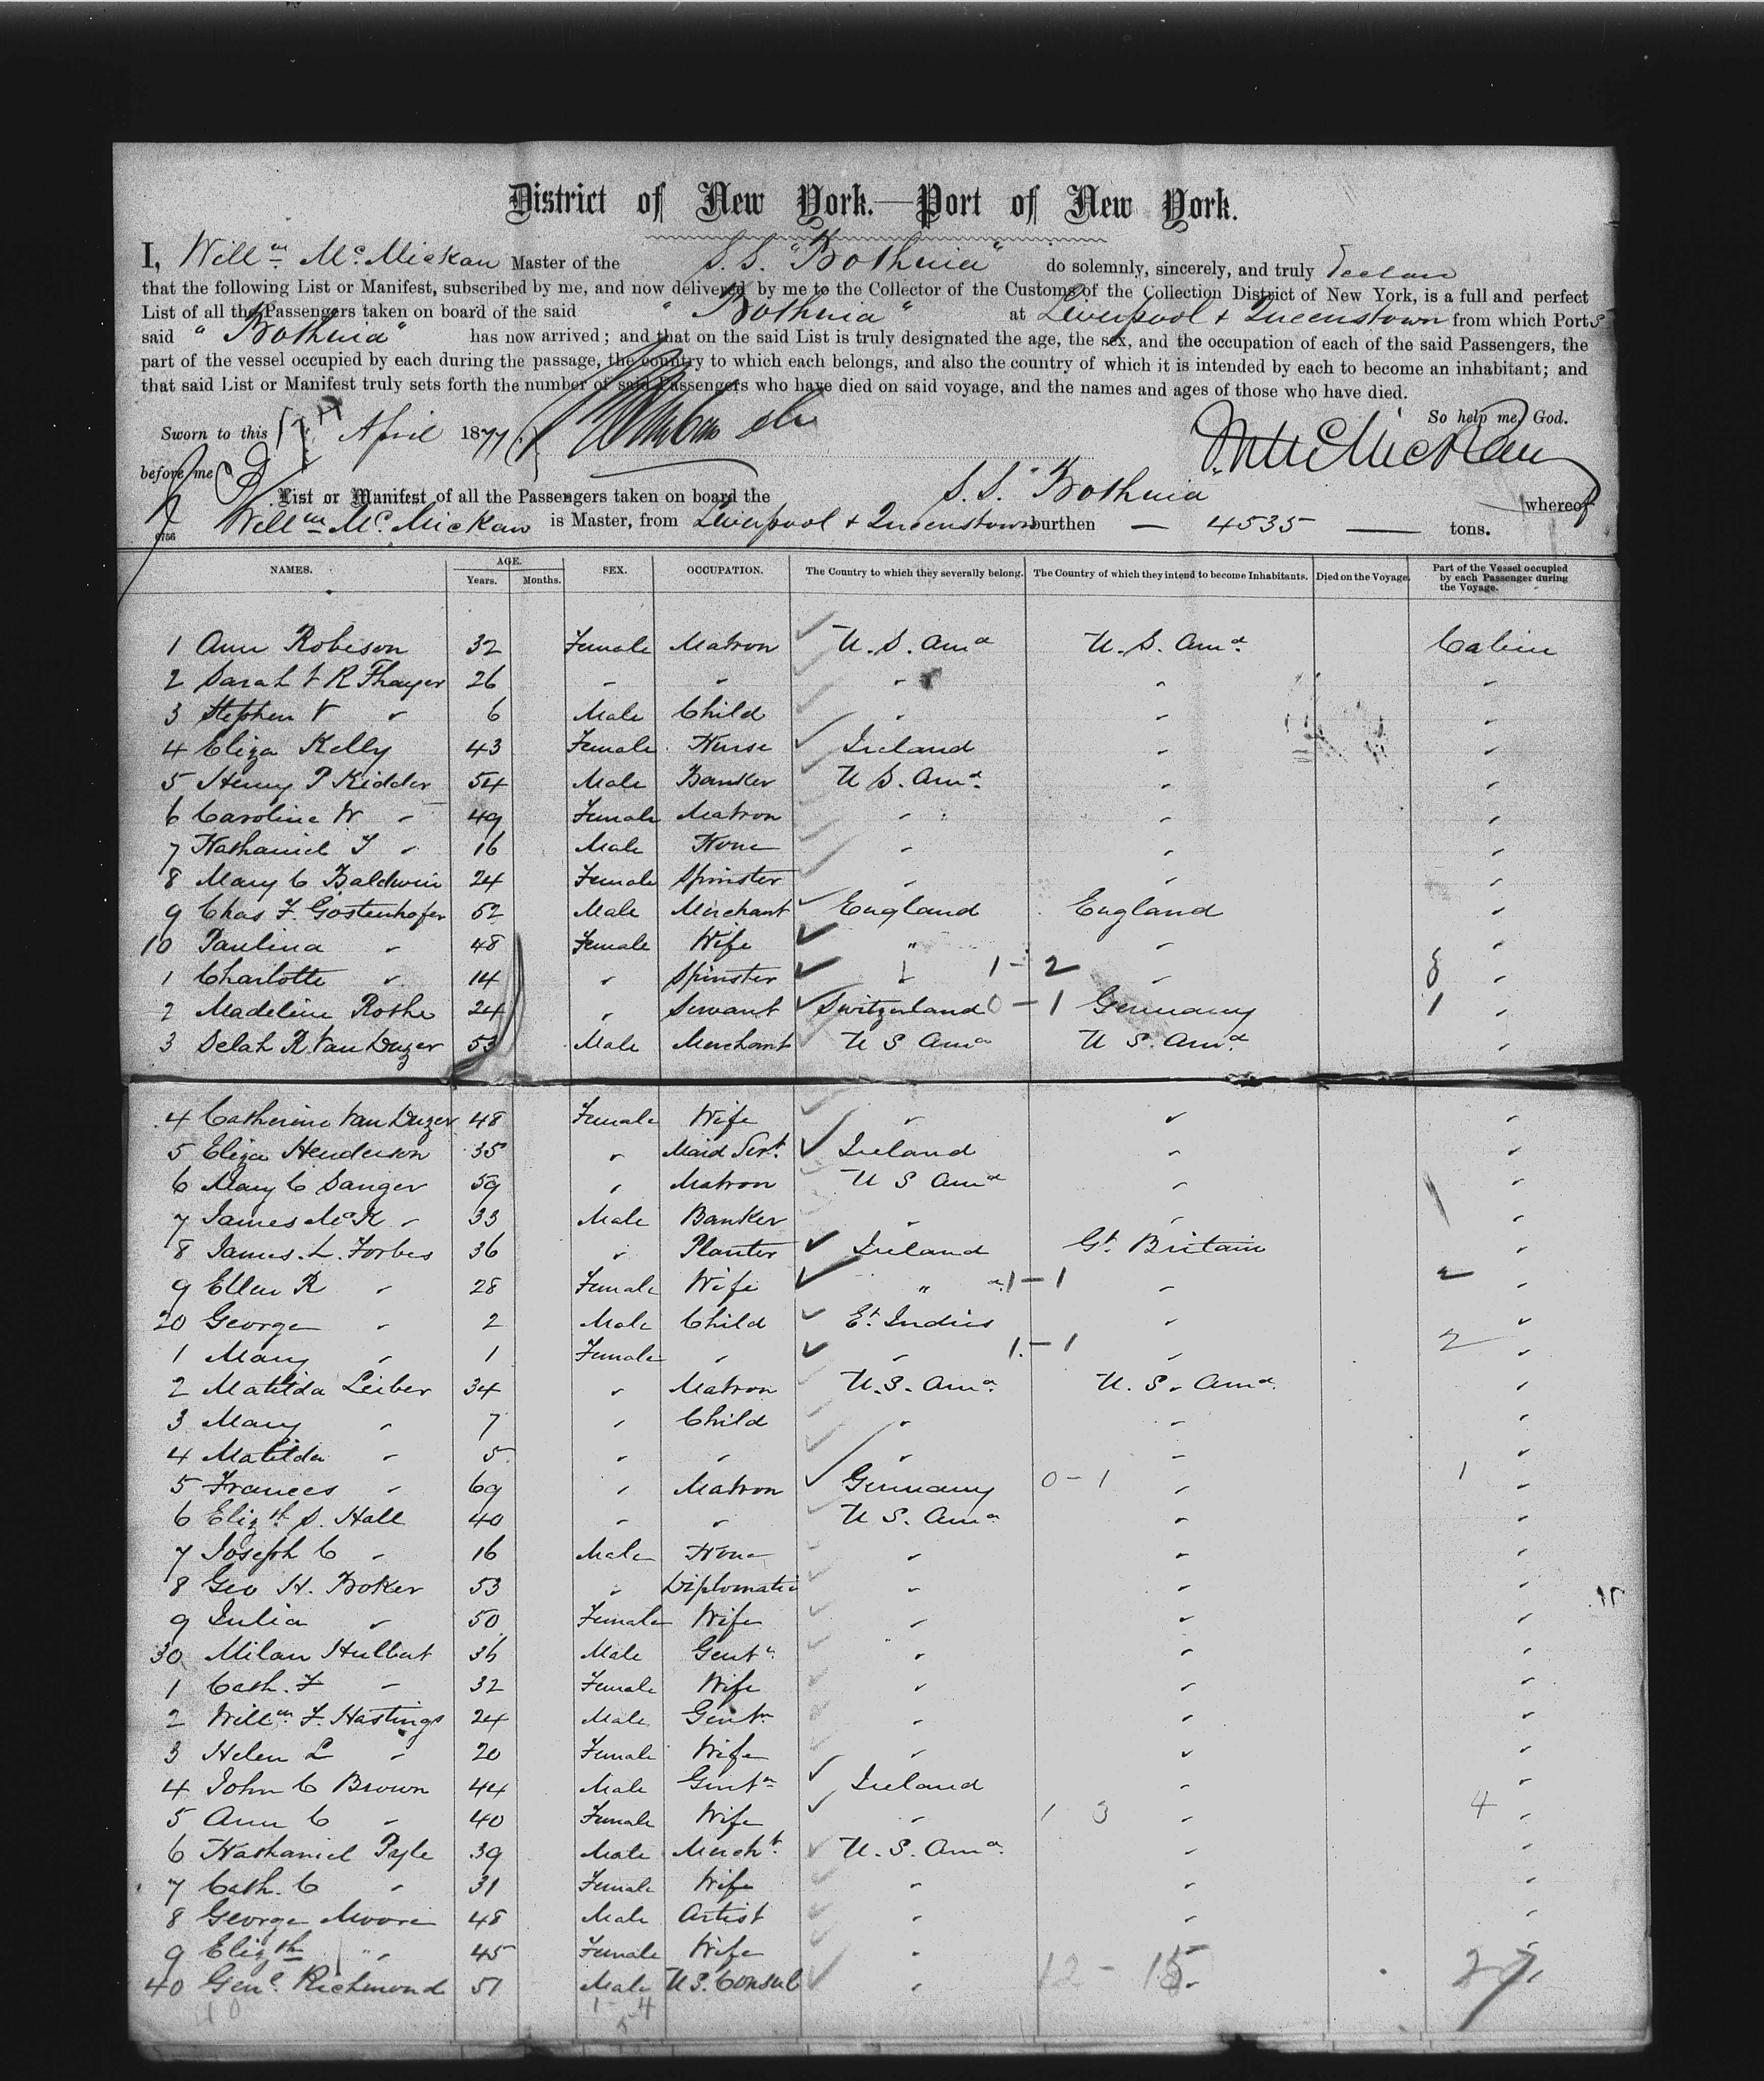 District of New York.—Port of New York.
I, Willm McMickan Master of the S.S. "Bothnia" do solemnly, sincerely, and truly declare
that the following List or Manifest, subscribed by me, and now delivered by me to the Collector of the Customs of the Collection District of New York, is a full and perfect
List of all the Passengers taken on board of the said "Bothnia" at Liverpool & Queenstown from which Ports
said "Bothnia" has now arrived; and that on the said List is truly designated the age, the sex, and the occupation of each of the said Passengers, the
part of the vessel occupied by each during the passage, the country to which each belongs, and also the country of which it is intended by each to become an inhabitant; and
that said List or Manifest truly sets forth the number of said Passengers who have died on said voyage, and the names and ages of those who have died.
So help me God.
Sworn to this April 1877 WMcMickan
before me
List or Manifest of all the Passengers taken on board the S.S. "Bothnia" whereof
Willm McMickan is Master, from Liverpool & Queenstown burthen — 4535 — tons.
6756
NAMES. AGE. Years. Months. SEX. OCCUPATION. The Country to which they severally belong. The Country of which they intend to become Inhabitants. Died on the Voyage. Part of the Vessel occupied by each Passenger during the Voyage.
1 Ann Robeson 32 Female Matron U.S. Ama U.S. Ama Cabin
2 Sarah V R Thayer 26 " " " " "
3 Stephen V " 6 Male Child " " "
4 Eliza Kelly 43 Female Nurse Ireland " "
5 Henry P Kidder 54 Male Banker U S. Ama " "
6 Caroline W " 49 Female Matron " " "
7 Nathaniel T " 16 Male None " " "
8 Mary C Baldwin 24 Female Spinster " " "
9 Chas F. Gostenhofer 52 Male Merchant England England "
10 Paulina " 48 Female Wife " " "
1 Charlotte " 14 " Spinster " 1-2 " 3 "
2 Madeline Rothe 24 " Servant Switzerland 0-1 Germany 1 "
3 Selah R Van Duzer 53 Male Merchant U S Ama U S. Ama "
4 Catherine Van Duzer 48 Female Wife " " "
5 Eliza Henderson 35 " Maid Servt Ireland " "
6 Mary C Sanger 59 " Matron U S Ama " "
7 James McK " 33 Male Banker " " "
8 James. L. Forbes 36 " Planter Ireland Gt Britain "
9 Ellen R " 28 Female Wife " 1-1 " 2 "
20 George " 2 Male Child Et Indies " "
1 Mary " 1 Female " " 1-1 " 2 "
2 Matilda Leiber 34 " Matron U.S. Ama U.S. Ama "
3 Mary " 7 " Child " " "
4 Matilda " 5 " " " " "
5 Frances " 69 " Matron Germany 0-1 " 1 "
6 Elizth S. Hall 40 " " U S. Ama " "
7 Joseph C " 16 Male None " " "
8 Geo H. Boker 53 " Diplomatic " " "
9 Julia " 50 Female Wife " " "
30 Milan Hulbut 36 Male Gentn " " "
1 Cath. F " 32 Female Wife " " "
2 Willm F. Hastings 24 Male Gentn " " "
3 Helen L " 20 Female Wife " " "
4 John C Brown 44 Male Gentn Ireland " "
5 Ann C " 40 Female Wife " 1 3 " 4 "
6 Nathaniel Pyle 39 Male Mercht U.S. Ama " "
7 Cath. C " 31 Female Wife " " "
8 George Moore 48 Male Artist " " "
9 Elizth " 45 Female Wife " " "
40 Genl Richmond 51 Male U.S. Consul " 12-15 27